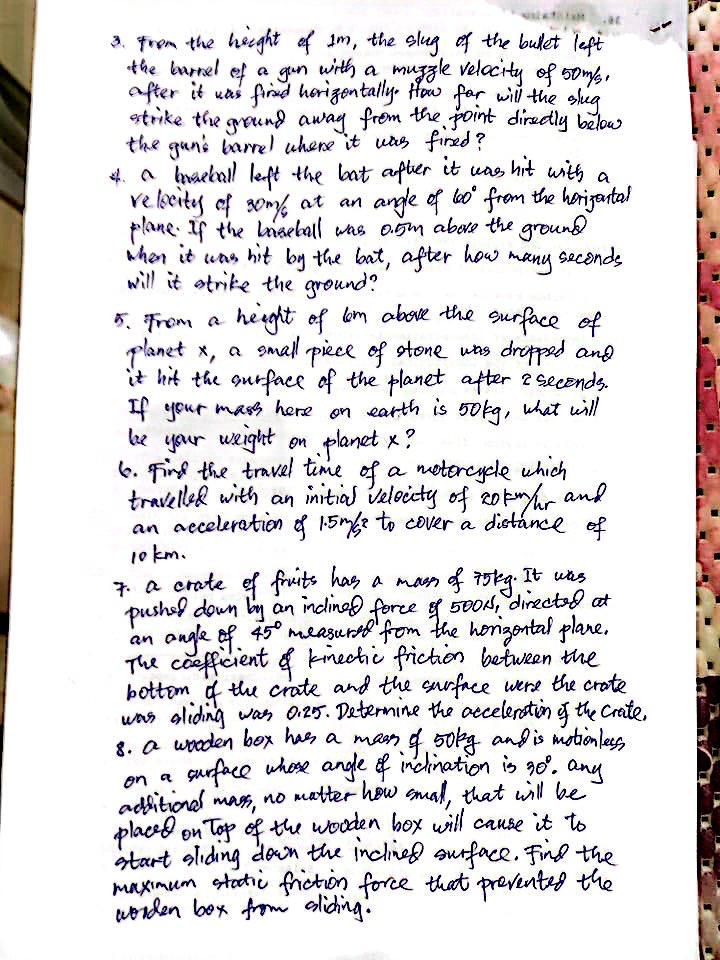 3. From the height of 1m, the slug of the bullet left
the barrel of a gun with a muzzle velocity of 50m/s,
after it was fired horizontally. How far will the slug
strike the ground away from the point directly below
the gun's barrel where it was fired?
4. a baseball left the bat after it was hit with a
velocity of 30m/s at an angle of 60° from the horizontal
plane. If the baseball was 0.5m above the ground
when it was hit by the bat, after how many seconds
will it strike the ground?
5. From a height of 6m above the surface of
planet x, a small piece of stone was dropped and
it hit the surface of the planet after 2 seconds.
If your mass here on earth is 50kg, what will
be your weight on planet x?
6. Find the travel time of a motorcycle which
travelled with an initial velocity of 20km/hr and
an acceleration of 1.5m/s² to cover a distance of
10 km.
7. a crate of fruits has a mass of 75kg. It was
pushed down by an inclined force of 500N, directed at
an angle of 45° measured from the horizontal plane.
The coefficient of kinectic friction between the
bottom of the crate and the surface were the crate
was sliding was 0.25. Determine the acceleration of the crate.
8. a wooden box has a mass of 50kg and is motionless
on a surface whose angle of inclination is 30°. any
additional mass, no matter how small, that will be
placed on Top of the wooden box will cause it to
start sliding down the inclined surface. Find the
maximum static friction force that prevented the
wooden box from sliding.